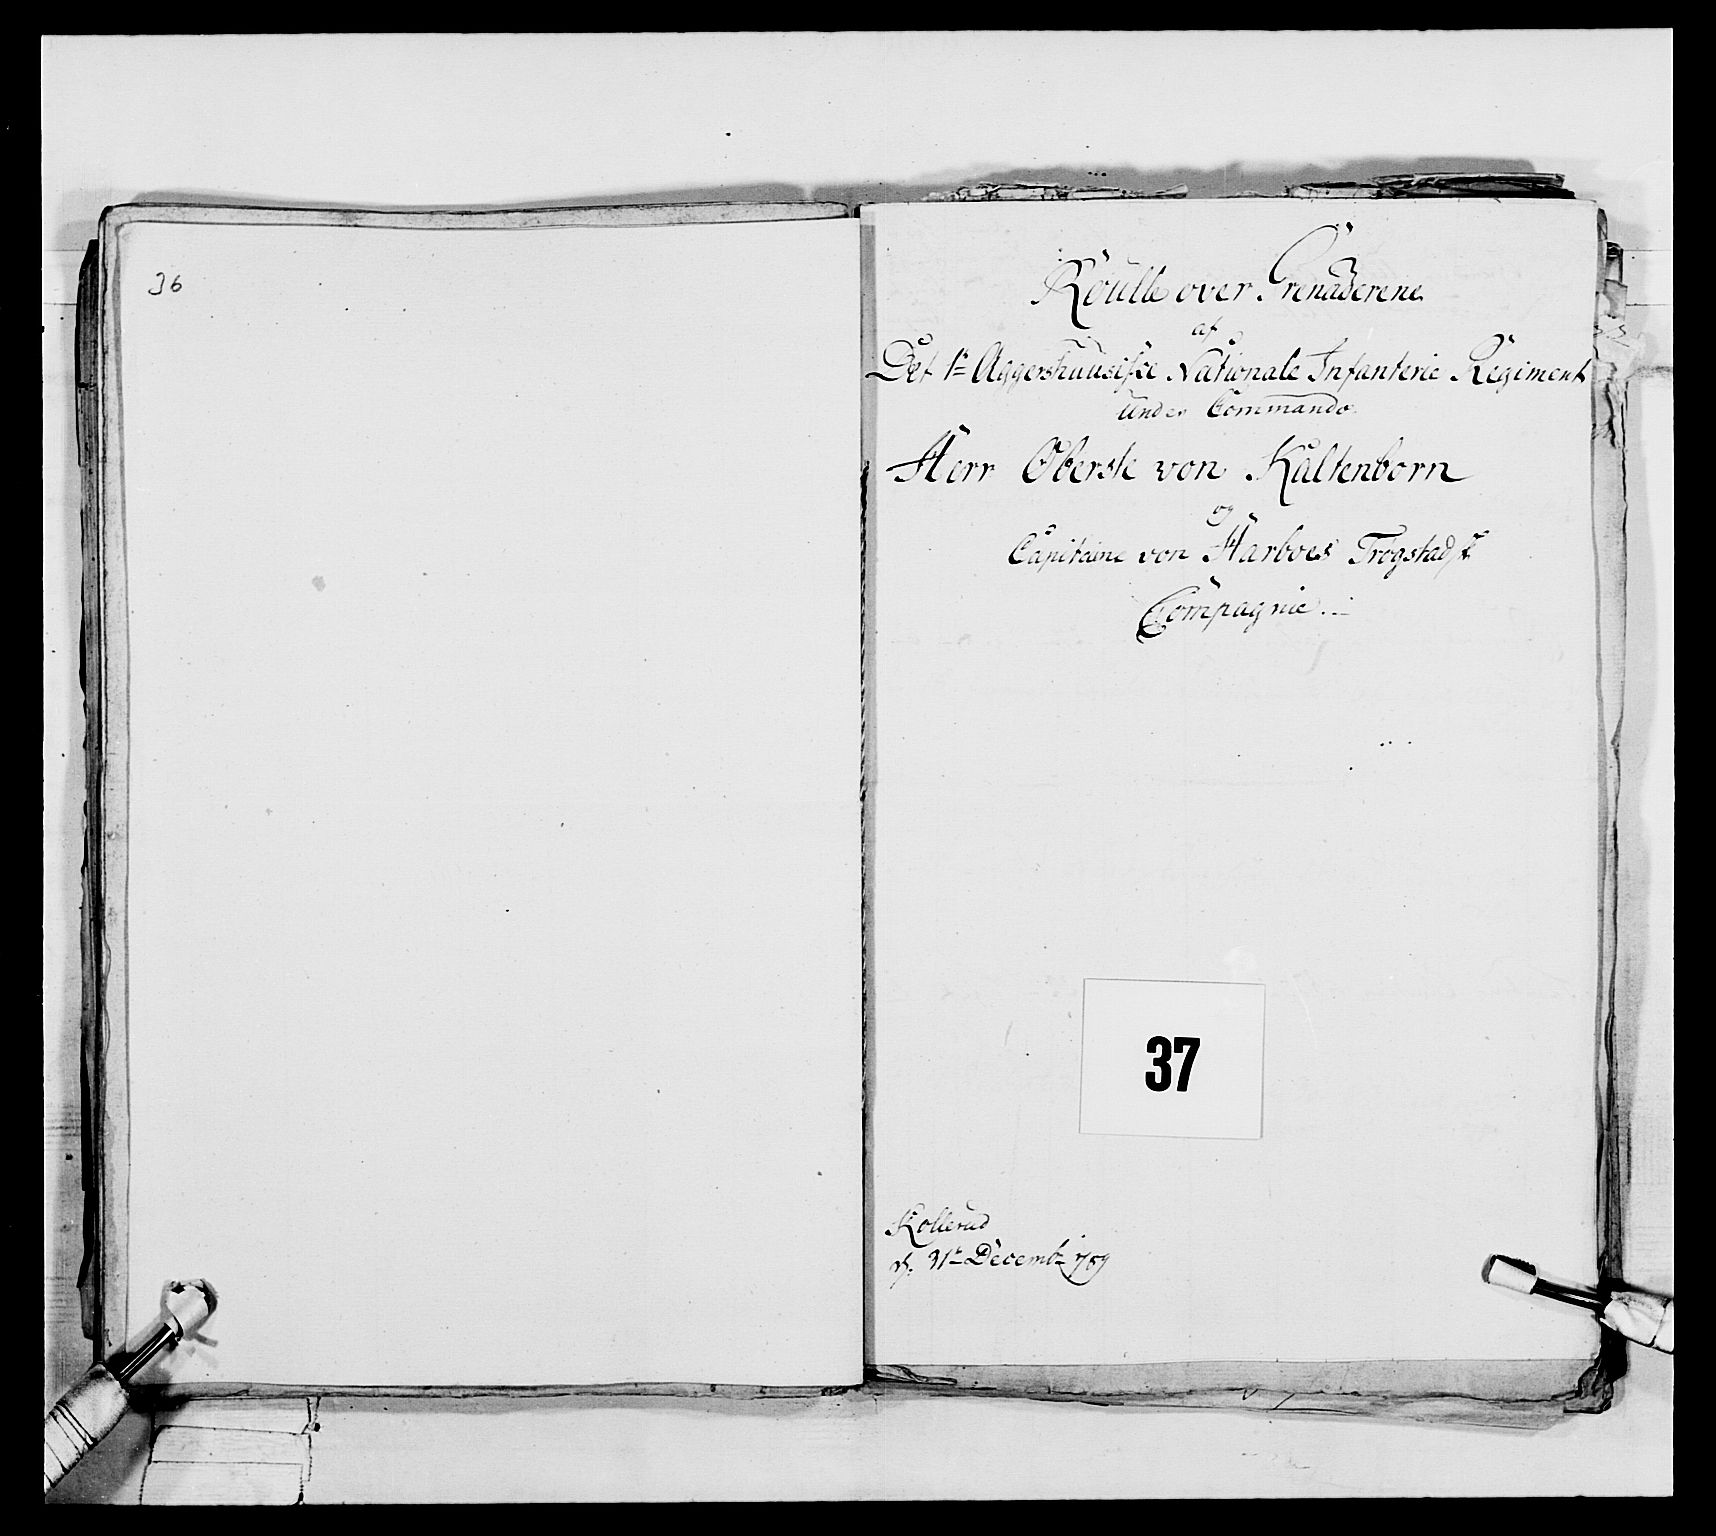 36
Roulle over Grenaderene
af
Det 1te Aggershuusiske Nationale Infanterie Regiment
under Commando
Herr Oberste von Kaltenborn
og
Capitaine von Harboes Trøgstadsk
Compagnie
37
Kollerud
d. 31te Decembr 1789